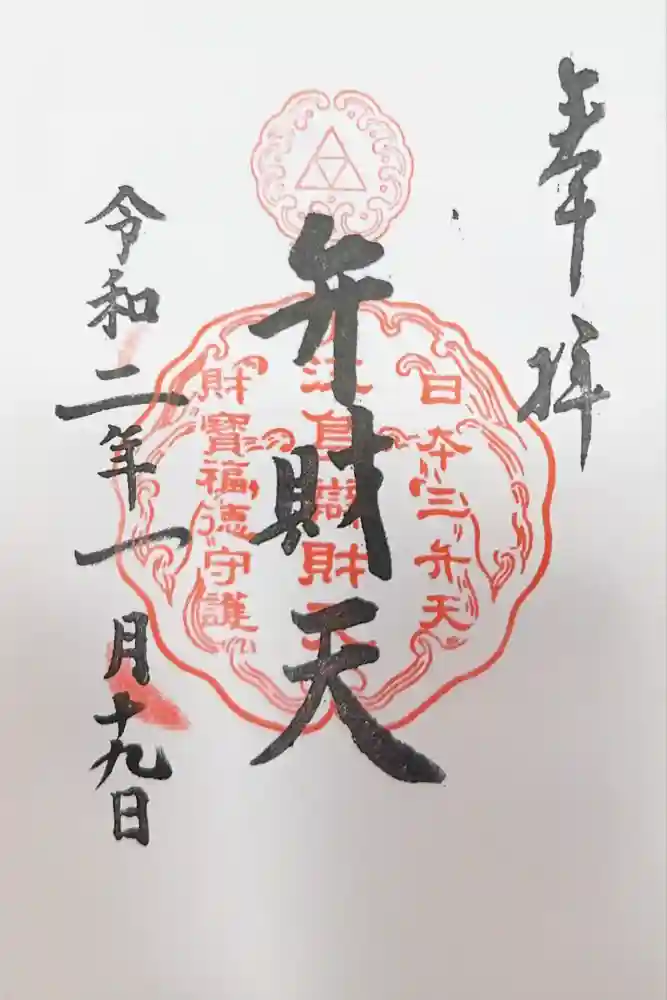 奉拝
日本三弁天
弁財天
江島辯財天
財寶福徳守護
令和二年一月十九日